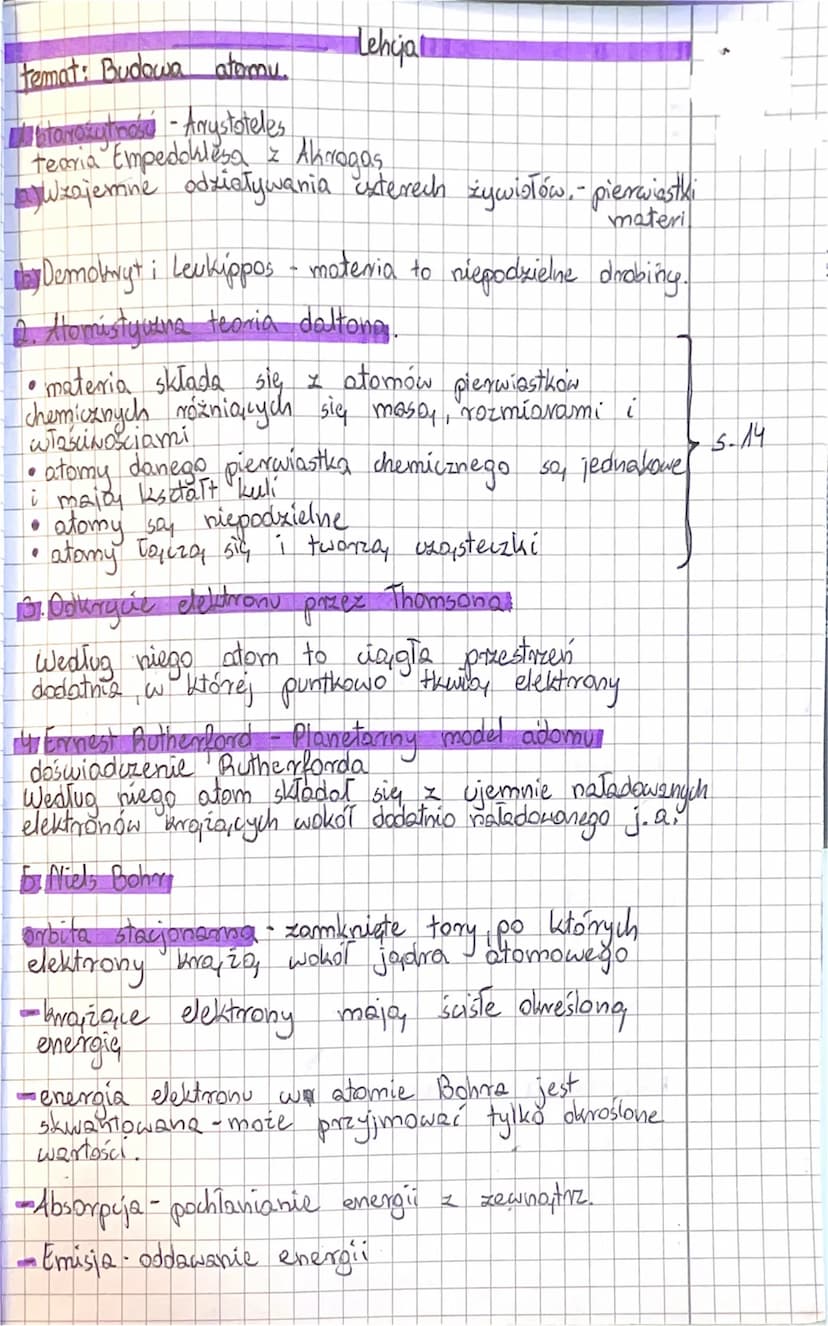 Lekcja
temat: Budowa atomu.
1. Starożytność - Arystoteles
teoria Empedoklesa z Akragas
a) Wzajemne odziaływania czterech żywiołów. - pierwiastki
materi
b) Demokryt i Leukippos - materia to niepodzielne drobiny.
2. Atomistyczna teoria daltona.
• materia składa się z atomów pierwiastków
chemicznych różniących się masą, rozmiarami i
właściwościami
s. 14
• atomy danego pierwiastka chemicznego są jednakowe
i mają kształt kuli
• atomy są niepodzielne
• atomy łączą się i tworzą cząsteczki
3. Odkrycie elektronu przez Thomsona
Według niego atom to ciągła przestrzeń
dodatnia, w której puntkowo tkwią elektrony
4. Ernest Rutherford - Planetarny model atomu
doświadczenie Rutherforda
Według niego atom składał się z ujemnie naładowanych
elektronów krążących wokół dodatnio naładowanego j.a.
5. Niels Bohr
orbita stacjonarna - zamknięte tory, po których
elektrony krążą wokół jądra atomowego
- krążące elektrony mają ściśle określoną
energię
- energia elektronu w atomie Bohra jest
skwantowana - może przyjmować tylko okroślone
wartości.
- Absorpcja - pochłanianie energii z zewnątrz.
- Emisja - oddawanie energii